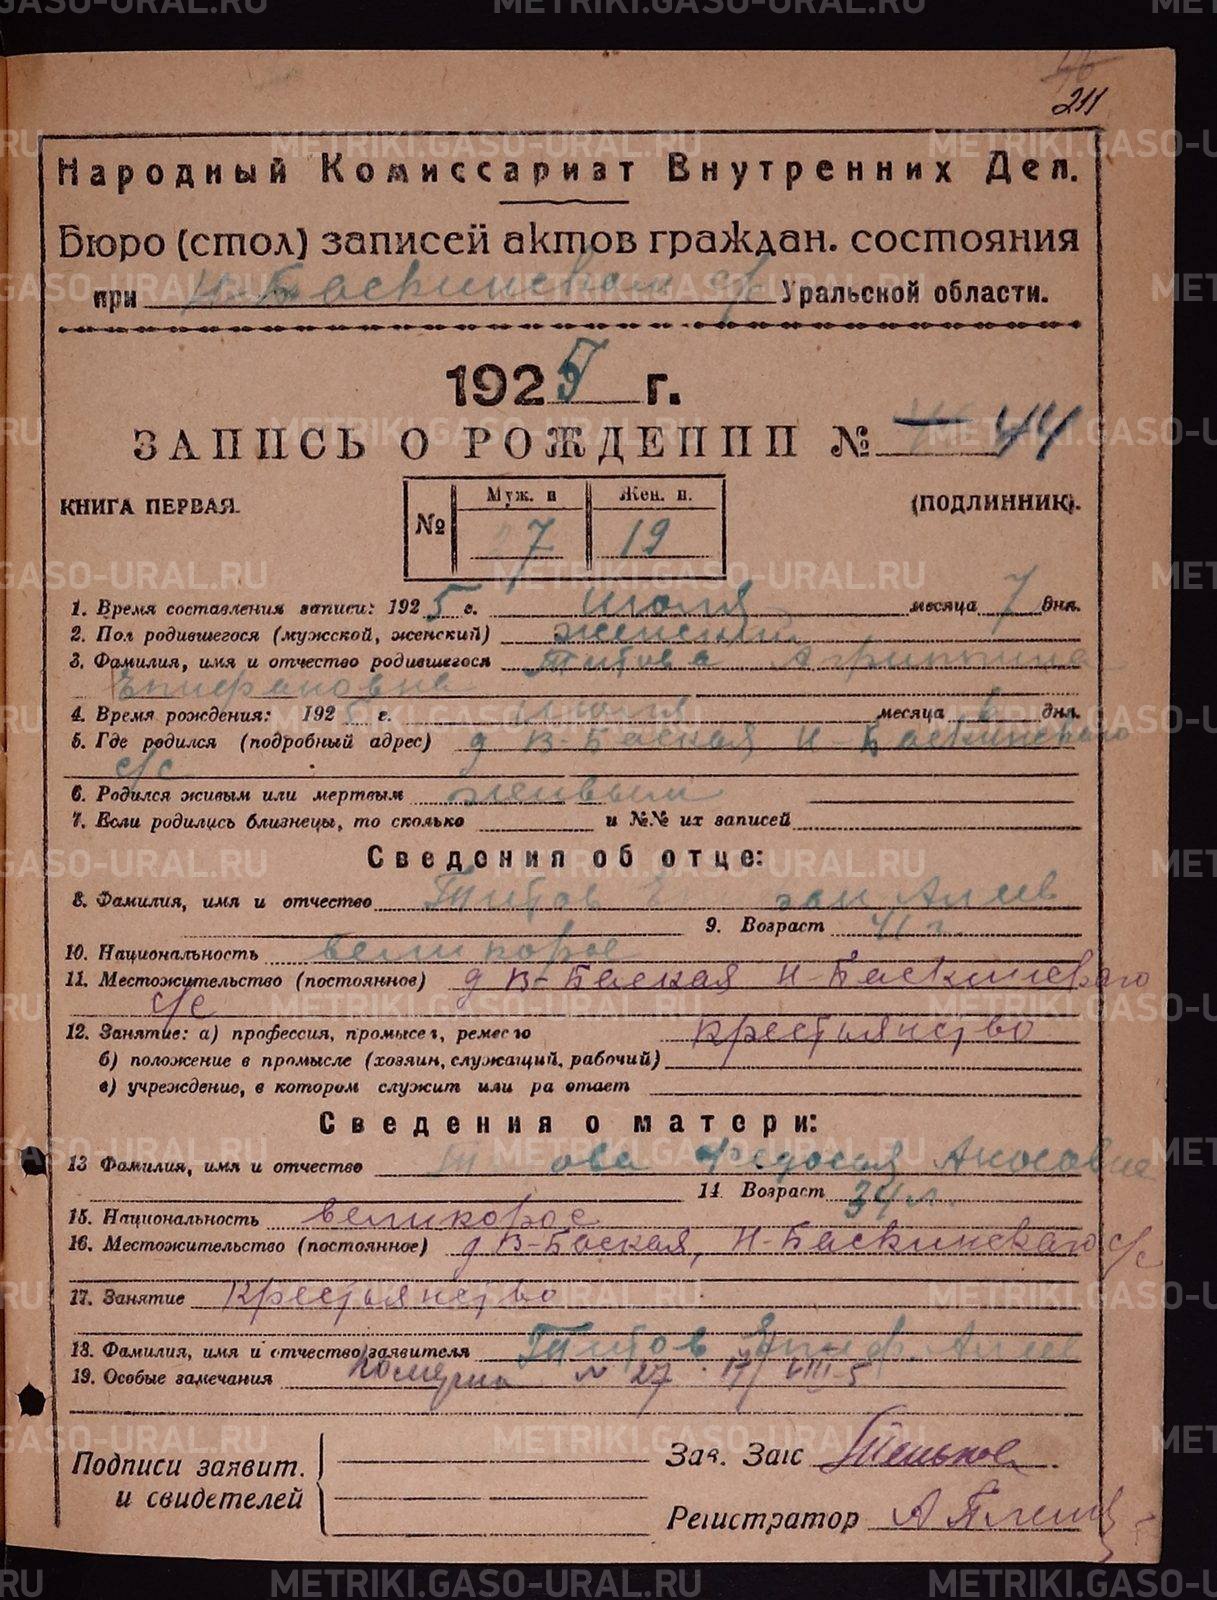 211
Народный Комиссариат Внутренних Дел.
Бюро (стол) записей актов граждан. состояния
при Н-Баскинском с/с Уральской области.
1925 г.
ЗАПИСЬ О РОЖДЕНИИ № 44
Муж. п Жен. п.
КНИГА ПЕРВАЯ. № 7 19 (ПОДЛИННИК).
1. Время составления записи: 1925 г. июля месяца 7 дня.
2. Пол родившегося (мужской, женский) женский
3. Фамилия, имя и отчество родившегося Титова Агрипина
Епифановна
4. Время рождения: 1925 г. июля месяца 6 дня.
5. Где родился (подробный адрес) д В-Баская Н-Баскинского
с/с
6. Родился живым или мертвым живым
7. Если родились близнецы, то сколько и №№ их записей
Сведения об отце:
8. Фамилия, имя и отчество Титов
9. Возраст 41 г.
10. Национальность великорос
11. Местожительство (постоянное) д В-Баская Н-Баскинского
с/с
12. Занятие: а) профессия, промысел, ремесло крестьянство
б) положение в промысле (хозяин, служащий, рабочий)
в) учреждение, в котором служит или ра отает
Сведения о матери:
13 Фамилия, имя и отчество Т ова Федосья
14. Возраст 34 л.
15. Национальность великорос
16. Местожительство (постоянное) д В-Баская, Н-Баскинского с/с
17. Занятие Крестьянство
18. Фамилия, имя и отчество заявителя Титов Епиф.
19. Особые замечания № 27 17/VIII-5
Подписи заявит. Зав. Загс
и свидетелей
Регистратор А
METRIKI.GASO-URAL.RU